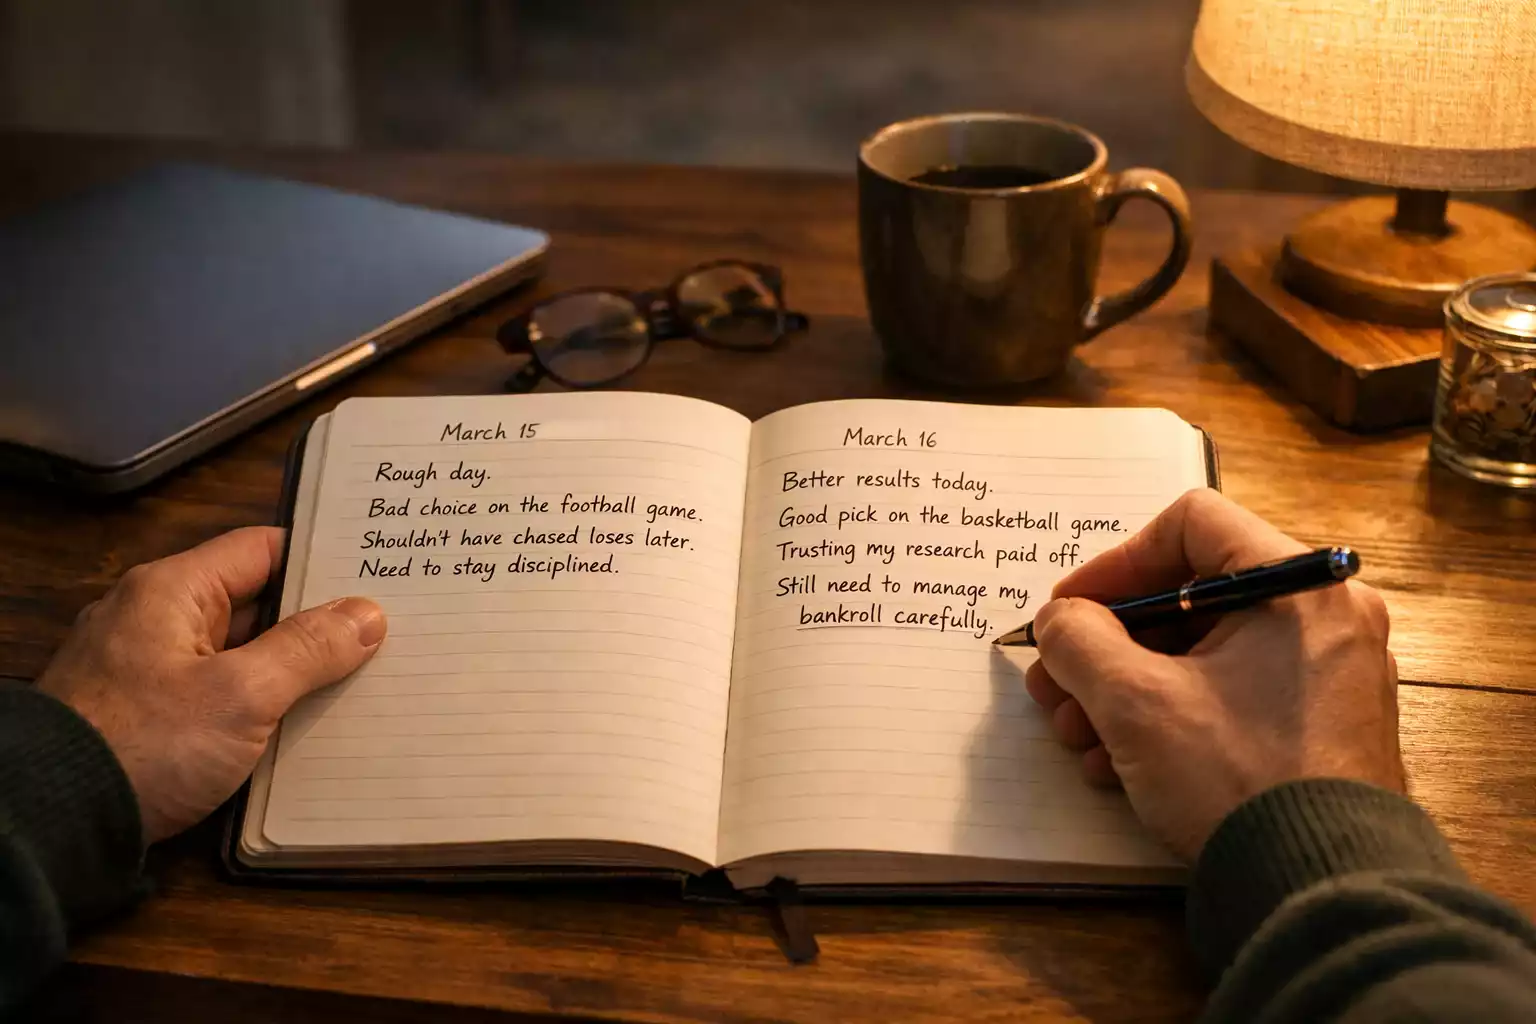 March 15
Rough day.
Bad choice on the football game.
Shouldn't have chased loses later.
Need to stay disciplined.
March 16
Better results today.
Good pick on the basketball game.
Trusting my research paid off.
Still need to manage my
bankroll carefully.